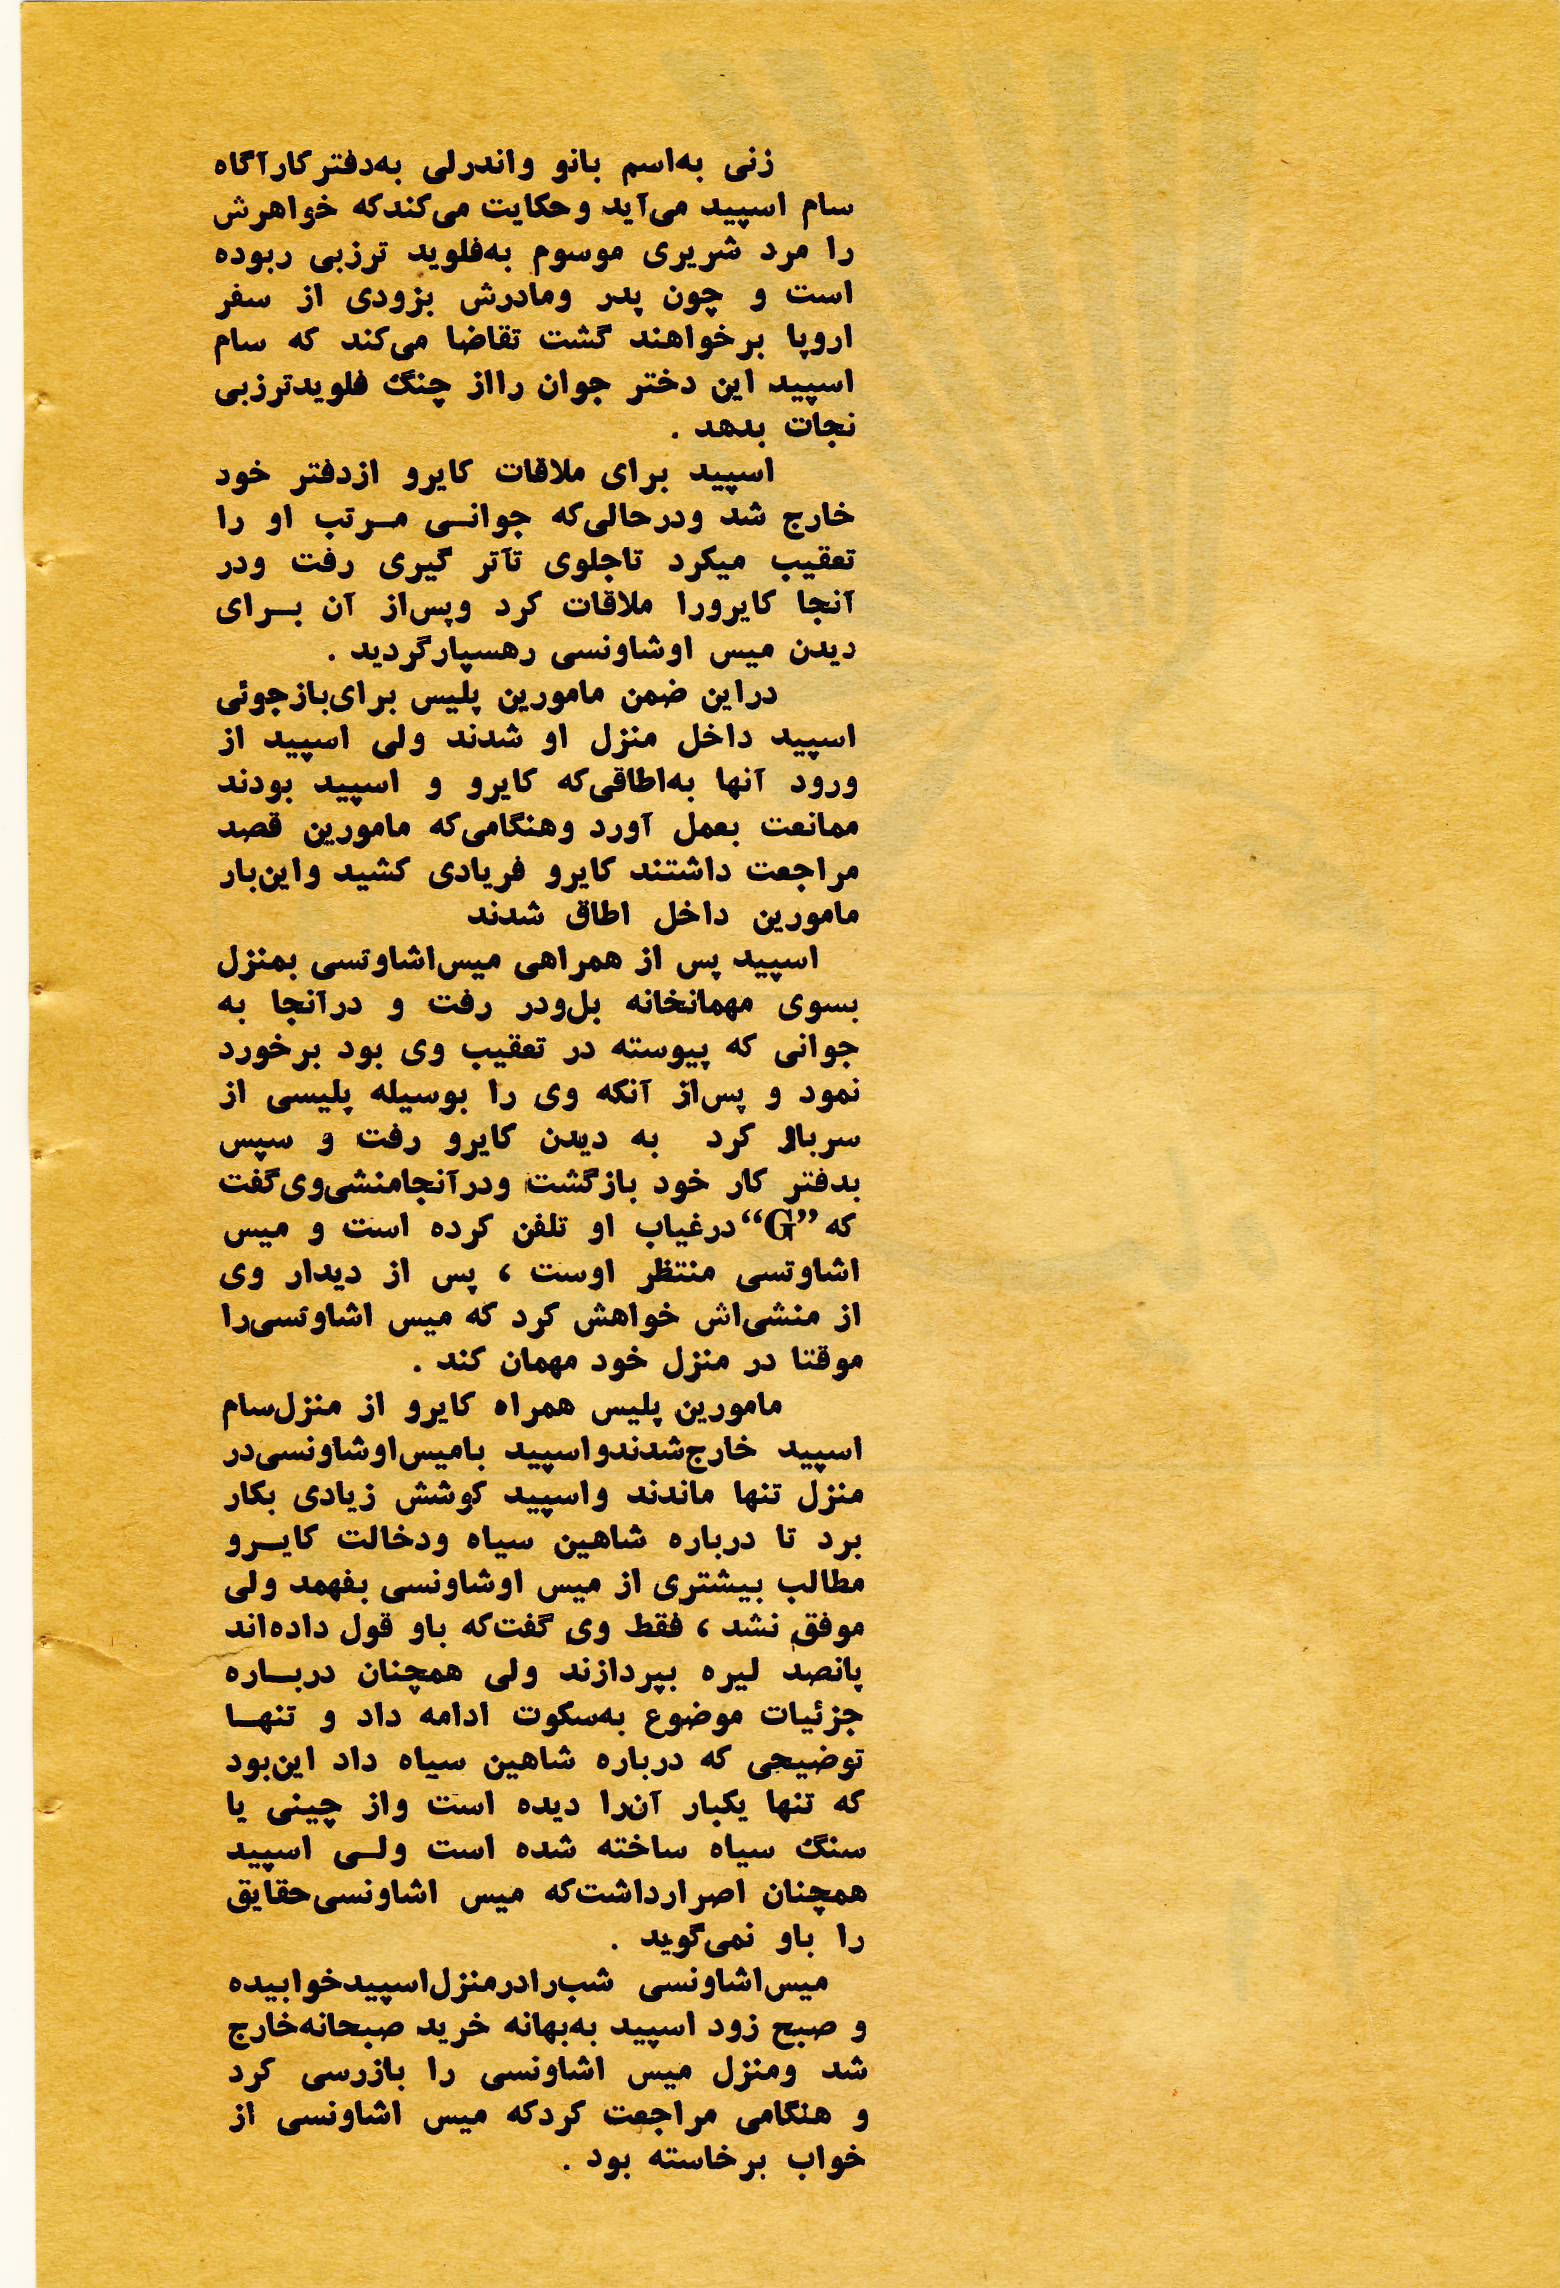 زنی به‌اسم بانو واندرلی به‌دفتر کارآگاه
سام اسپید می‌آید وحکایت می‌کندکه خواهرش
را مرد شریری موسوم به‌فلوید ترزبی ربوده
است و چون پدر ومادرش بزودی از سفر
اروپا برخواهند گشت تقاضا می‌کند که سام
اسپید این دختر جوان رااز چنگ فلویدترزبی
نجات بدهد .
اسپید برای ملاقات کایرو ازدفتر خود
خارج شد ودرحالی‌که جوانـی مـرتب او را
تعقیب میکرد تاجلوی تآتر گیری رفت ودر
آنجا کایرورا ملاقات کرد وپس‌از آن بـرای
دیدن میس اوشاونسی رهسپارگردید .
دراین ضمن مامورین پلیس برای‌بازجوئی
اسپید داخل منزل او شدند ولی اسپید از
ورود آنها به‌اطاقی‌که کایرو و اسپید بودند
ممانعت بعمل آورد وهنگامی‌که مامورین قصد
مراجعت داشتند کایرو فریادی کشید واین‌بار
مامورین داخل اطاق شدند
اسپید پس از همراهی میس‌اشاوتسی بمنزل
بسوی مهمانخانه بل‌ودر رفت و درآنجا به
جوانی که پیوسته در تعقیب وی بود برخورد
نمود و پس‌از آنکه وی را بوسیله پلیسی از
سرباز کرد به دیدن کایرو رفت و سپس
بدفتر کار خود بازگشت ودرآنجامنشی‌وی‌گفت
که ”G“ درغیاب او تلفن کرده است و میس
اشاوتسی منتظر اوست ، پس از دیدار وی
از منشی‌اش خواهش کرد که میس اشاوتسی‌را
موقتا در منزل خود مهمان کند .
مامورین پلیس همراه کایرو از منزل‌سام
اسپید خارج‌شدندواسپید بامیس‌اوشاونسی‌در
منزل تنها ماندند واسپید کوشش زیادی بکار
برد تا درباره شاهین سیاه ودخالت کایـرو
مطالب بیشتری از میس اوشاونسی بفهمد ولی
موفق نشد ، فقط وی گفت‌که باو قول داده‌اند
پانصد لیره بپردازند ولی همچنان دربـاره
جزئیات موضوع به‌سکوت ادامه داد و تنهـا
توضیحی که درباره شاهین سیاه داد این‌بود
که تنها یکبار آن‌را دیده است واز چینی یا
سنگ سیاه ساخته شده است ولـی اسپید
همچنان اصرارداشت‌که میس اشاونسی‌حقایق
را باو نمی‌گوید .
میس‌اشاونسی شب‌رادرمنزل‌اسپیدخوابیده
و صبح زود اسپید به‌بهانه خرید صبحانه‌خارج
شد ومنزل میس اشاونسی را بازرسی کرد
و هنگامی مراجعت کردکه میس اشاونسی از
خواب برخاسته بود .